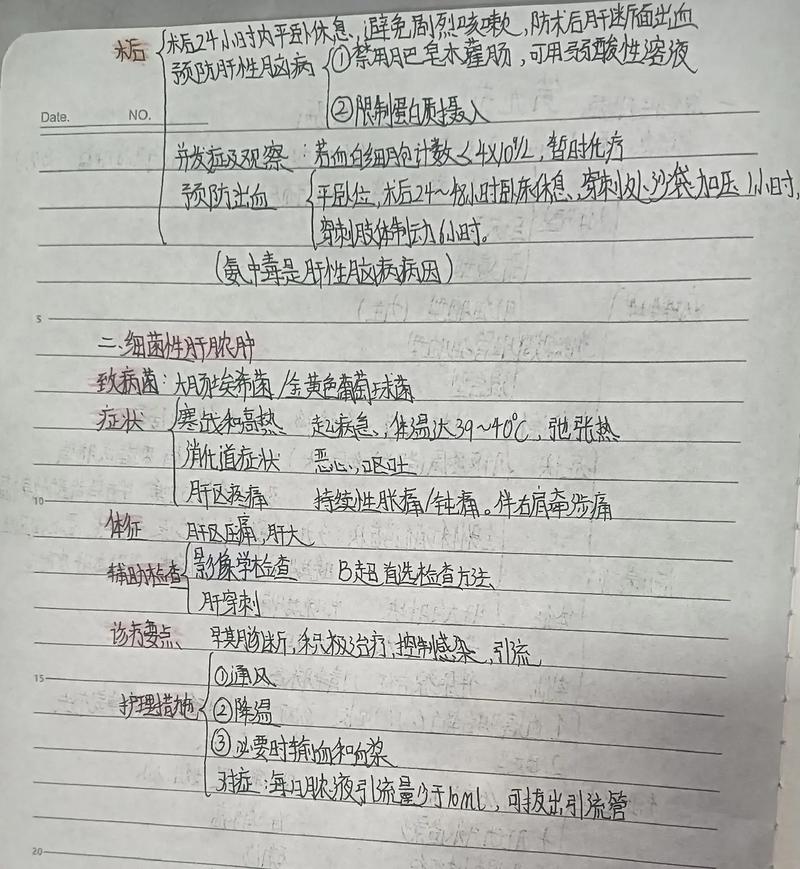 术后 术后24小时内平卧休息,避免剧烈咳嗽,防术后肝断面出血
预防肝性脑病 ①禁用肥皂水灌肠,可用弱酸性溶液
Date. NO.
②限制蛋白质摄入
并发症及观察:若血白细胞计数<4×10⁹/L,暂时化疗
预防出血 平卧位,术后24~48小时卧床休息、穿刺处沙袋加压1小时,
穿刺肢体制动6小时。
(氨中毒是肝性脑病病因)
5
二、细菌性肝脓肿
致病菌:大肠埃希菌/金黄色葡萄球菌
症状 寒战和高热 起病急,体温达39~40℃,弛张热
消化道症状 恶心,呕吐
10 肝区疼痛 持续性胀痛/钝痛。伴右肩牵涉痛
体征 肝区压痛,肝大
辅助检查 影像学检查 B超首选检查方法
肝穿刺
诊疗要点 早期诊断,积极治疗,控制感染,引流
15 ①通风
护理措施 ②降温
③必要时输血和血浆
对症:每日脓液引流量少于10ml,可拔出引流管
20